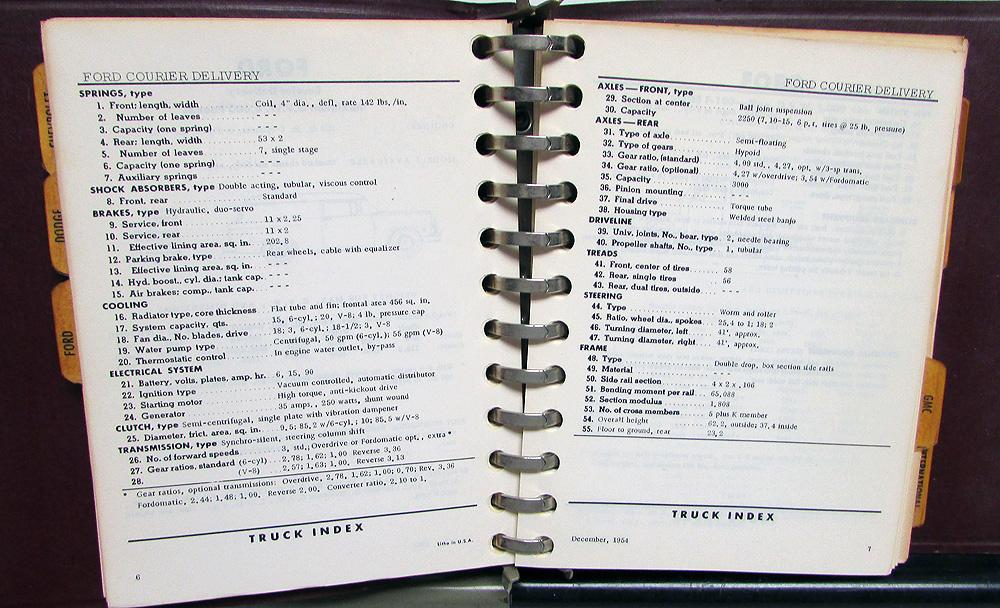 FORD COURIER DELIVERY
SPRINGS, type
1. Front: length, width Coil, 4" dia., defl. rate 142 lbs./in.
2. Number of leaves - - -
3. Capacity (one spring) - - -
4. Rear: length, width 53 x 2
5. Number of leaves 7, single stage
6. Capacity (one spring) - - -
7. Auxiliary springs - - -
SHOCK ABSORBERS, type Double acting, tubular, viscous control
8. Front, rear Standard
BRAKES, type Hydraulic, duo-servo
9. Service, front 11 x 2.25
10. Service, rear 11 x 2
11. Effective lining area, sq. in. 202.8
12. Parking brake, type Rear wheels, cable with equalizer
13. Effective lining area, sq. in. - - -
14. Hyd. boost., cyl. dia.; tank cap. - - -
15. Air brakes; comp., tank cap. - - -
COOLING
16. Radiator type, core thickness Flat tube and fin; frontal area 456 sq. in.
17. System capacity, qts. 15, 6-cyl.; 20, V-8; 4 lb. pressure cap
18. Fan dia., No. blades, drive 18; 3, 6-cyl.; 18-1/2; 3, V-8
19. Water pump type Centrifugal, 50 gpm (6-cyl.); 55 gpm (V-8)
20. Thermostatic control In engine water outlet, by-pass
ELECTRICAL SYSTEM
21. Battery, volts, plates, amp. hr. 6, 15, 90
22. Ignition type Vacuum controlled, automatic distributor
23. Starting motor High torque, anti-kickout drive
24. Generator 35 amps., 250 watts, shunt wound
CLUTCH, type Semi-centrifugal, single plate with vibration dampener
25. Diameter, frict. area, sq. in. 9.5; 85.2 w/6-cyl.; 10; 85.5 w/V-8
TRANSMISSION, type Synchro-silent, steering column shift
26. No. of forward speeds 3, std.; Overdrive or Fordomatic opt., extra *
27. Gear ratios, standard (6-cyl) 2.78; 1.62; 1.00 Reverse 3.36
28. (V-8) 2.57; 1.63; 1.00. Reverse 3.13
* Gear ratios, optional transmissions: Overdrive, 2.78, 1.62; 1.00; 0.70; Rev. 3.36
Fordomatic, 2.44; 1.48; 1.00. Reverse 2.00. Converter ratio, 2.10 to 1.
TRUCK INDEX
Litho in U.S.A.
6
FORD COURIER DELIVERY
AXLES—FRONT, type
29. Section at center Ball joint suspension
30. Capacity 2250 (7.10-15, 6 p.r. tires @ 25 lb. pressure)
AXLES—REAR
31. Type of axle Semi-floating
32. Type of gears Hypoid
33. Gear ratio, (standard) 4.09 std., 4.27, opt. w/3-sp trans.
34. Gear ratio, (optional) 4.27 w/overdrive; 3.54 w/Fordomatic
35. Capacity 3000
36. Pinion mounting - - -
37. Final drive Torque tube
38. Housing type Welded steel banjo
DRIVELINE
39. Univ. joints, No., bear. type 2, needle bearing
40. Propeller shafts, No., type 1, tubular
TREADS
41. Front, center of tires 58
42. Rear, single tires 56
43. Rear, dual tires, outside - - -
STEERING
44. Type Worm and roller
45. Ratio, wheel dia., spokes 25.4 to 1; 18; 2
46. Turning diameter, left 41', approx.
47. Turning diameter, right 41', approx.
FRAME
48. Type Double drop, box section side rails
49. Material - - -
50. Side rail section 4 x 2 x .106
51. Bending moment per rail 65,088
52. Section modulus 1.808
53. No. of cross members 5 plus K member
54. Overall height 62.2, outside; 37.4 inside
55. Floor to ground, rear 23.2
TRUCK INDEX
December, 1954
7
CHEVROLET
DODGE
FORD
GMC
INTERNATIONAL